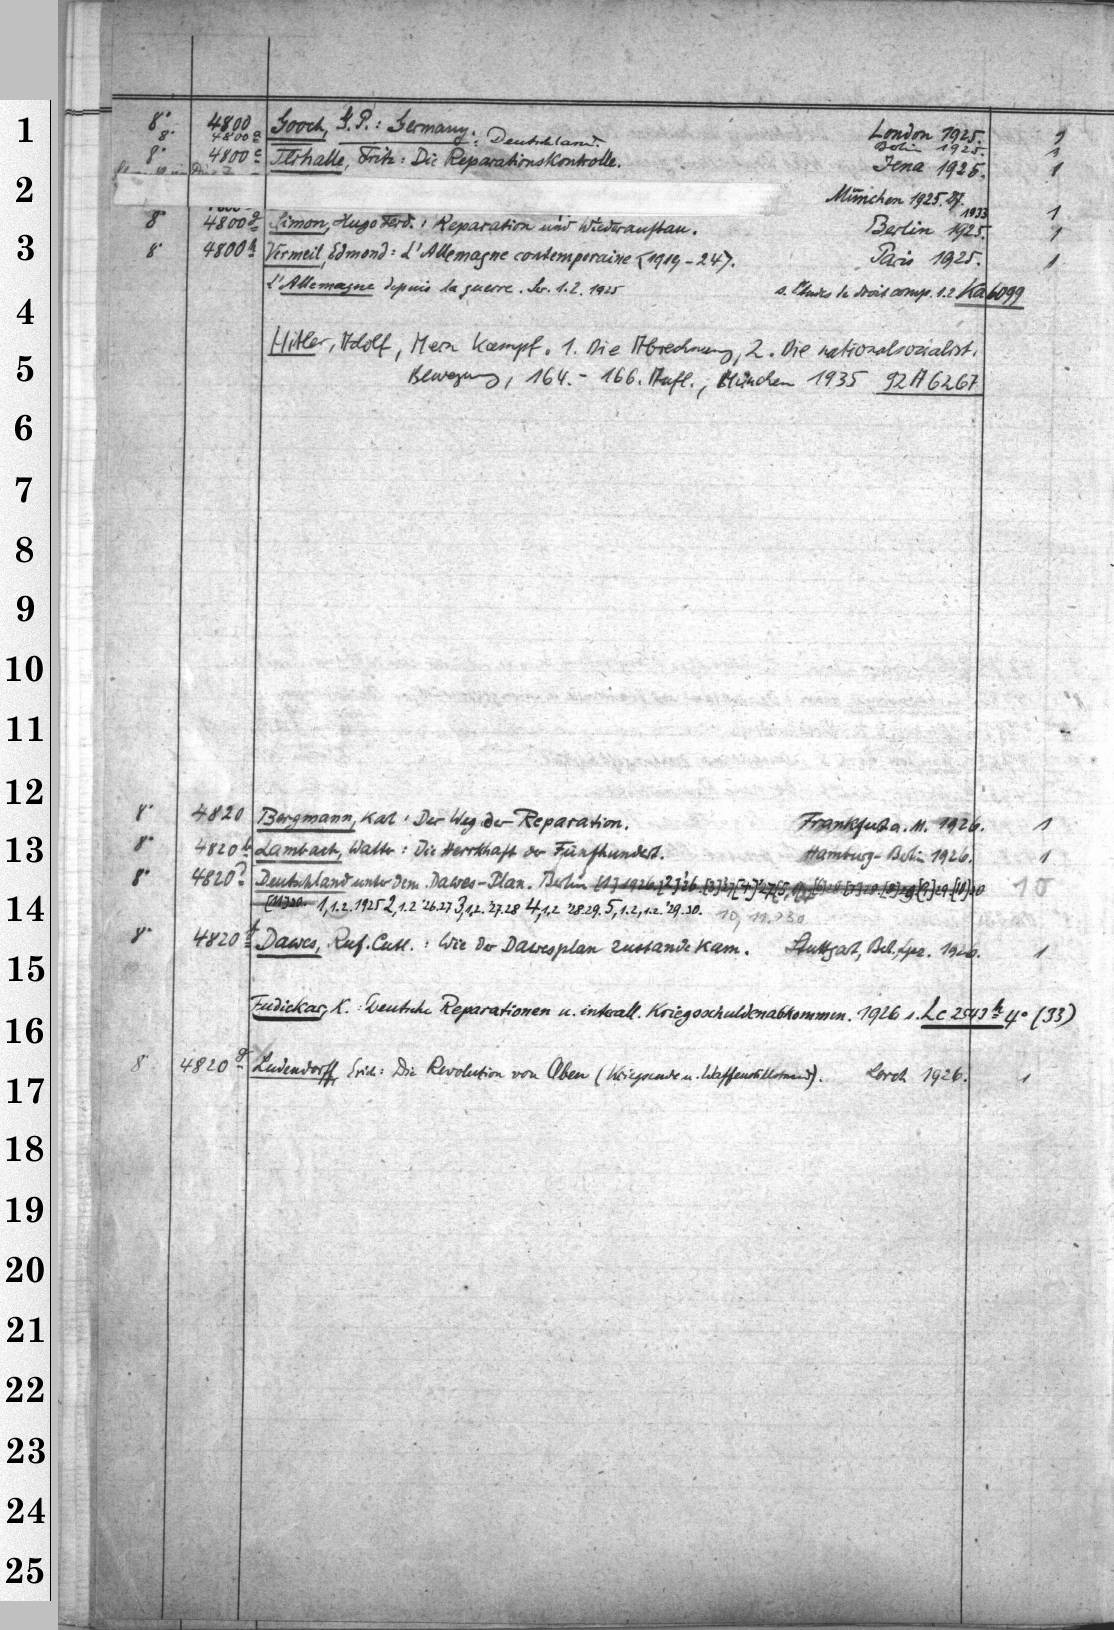 1
8° 4800 Gooch, G. P.: Germany. London 1925. 1
8° 4800 a : Deutschland. Berlin 1925. 1
8° 4800 c Terhalle, Fritz: Die Reparationskontrolle. Jena 1925. 1
2
München 1925. 27. 1
1933
3
8° 4800 g Simon, Hugo Ferd.: Reparation und Wiederaufbau. Berlin 1925. 1
8° 4800 h Vermeil, Edmond: L'Allemagne contemporaine <1919-24>. Paris 1925. 1
L'Allemagne depuis la guerre. Sér. 1.2. 1925 s. Etudes de droit comp. 1.2 Ka 6099
4
Hitler, Adolf, Mein Kampf. 1. Die Abrechnung, 2. Die nationalsozialist.
5
Bewegung, 164.-166. Aufl., München 1935 92 A 6267
6
7
8
9
10
11
12
8° 4820 Bergmann, Karl: Der Weg der Reparation. Frankfurt a. M. 1926. 1
13
8° 4820 b Lambach, Walter: Die Herrschaft der Fünfhundert. Hamburg-Berlin 1926. 1
8° 4820 c Deutschland unter dem Dawes-Plan. Berlin [1] 1926. [2] 26 [3] 27 [4] 27 10
14
[11] 30. 1,1.2. 1925 2,1.2 '26.27 3,1.2. '27.28 4,1.2 '28.29. 5,1.2, '29.30. 10, 11. 930
8° 4820 f Dawes, Ruf. Cutl.: Wie der Dawesplan zustande kam. Stuttgart, Bln., Lpz. 1926. 1
15
Fudickar, K.: Deutsche Reparationen u. interall. Kriegsschuldenabkommen. 1926 s. Lc 2543 h 4° (33)
16
8° 4820 g Ludendorff, Erich: Die Revolution von Oben (Kriegsende u. Waffenstillstand). Lorch 1926. 1
17
18
19
20
21
22
23
24
25